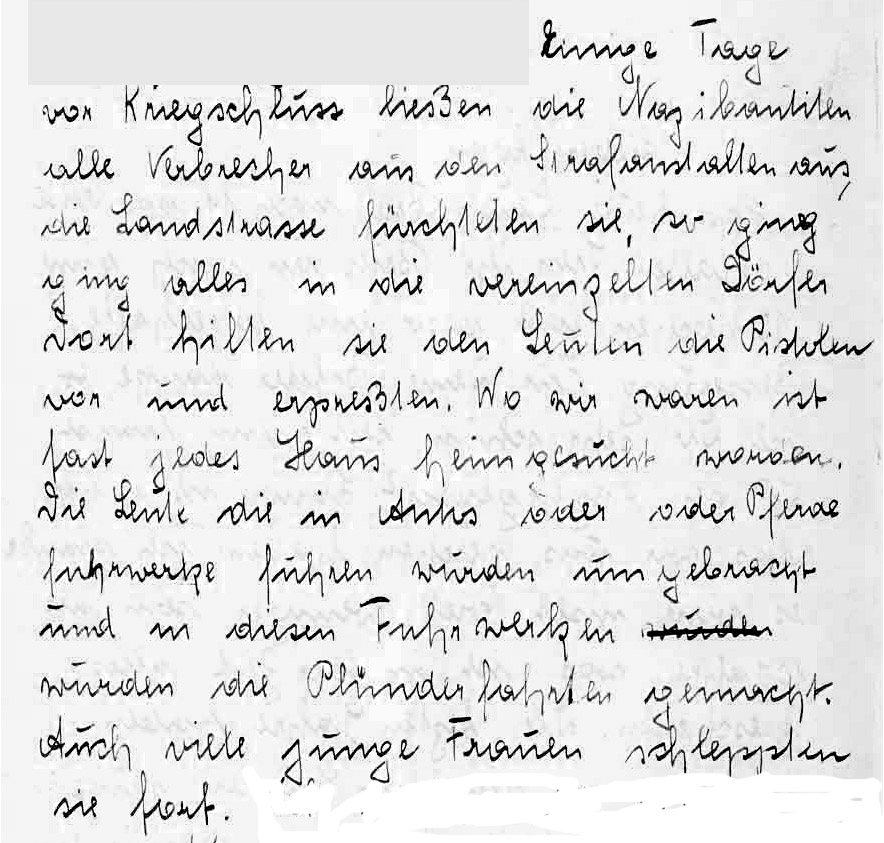 Einige Tage
vor Kriegschluss ließen die Nazibantiten
alle Verbrecher aus den Strafanstalten aus,
die Landstrasse fürchteten sie, so ging
ging alles in die vereinzelten Dörfer
Dort hilten sie den Leuten die Pistolen
vor und erpreßten. Wo wir waren ist
fast jedes Haus heimgesucht worden.
Die Leute die in Autos oder oder Pferde
fuhrwerke fuhren wurden umgebracht
und in diesen Fuhrwerken wurden
wurden die Plünderfahrten gemacht.
Auch viele junge Frauen schleppten
sie fort.